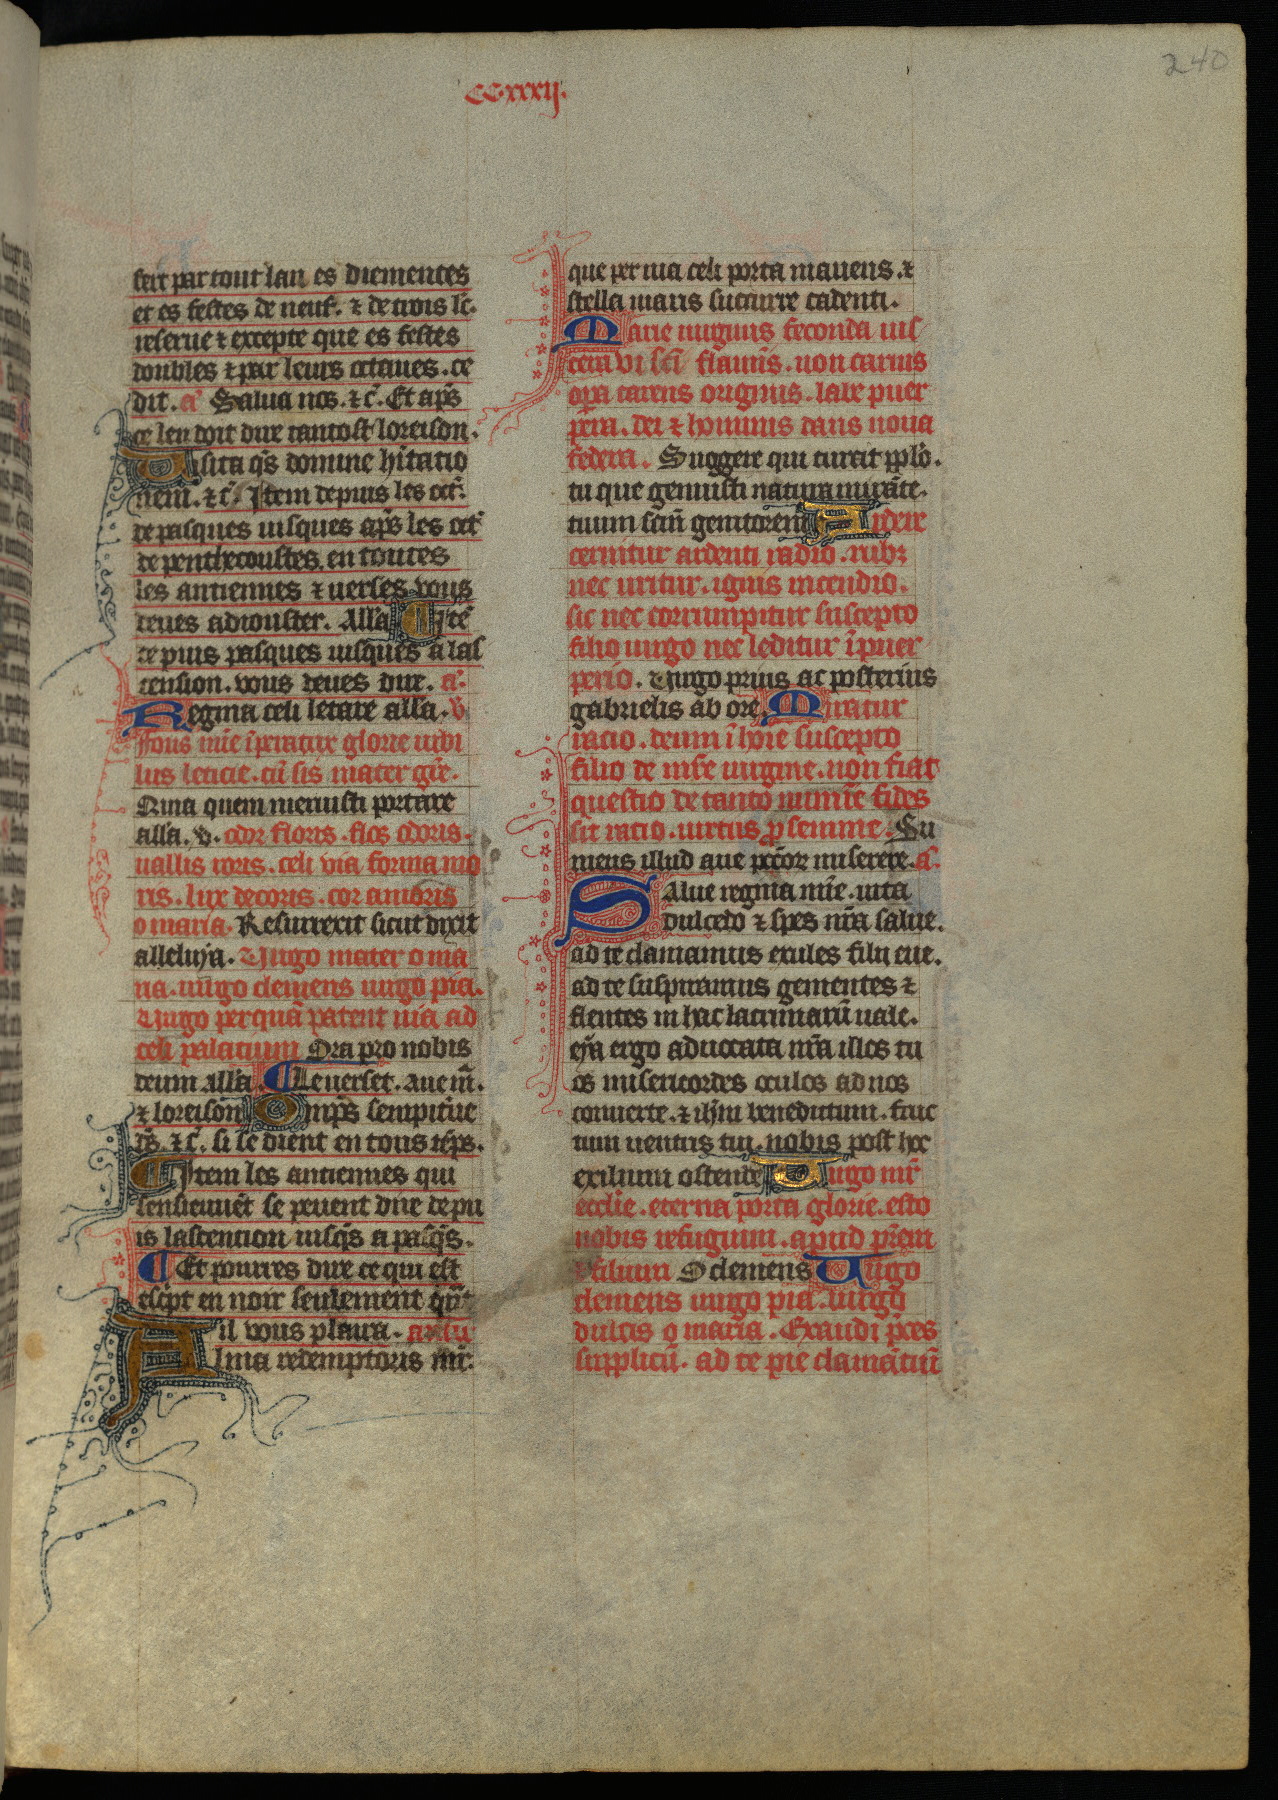 240
CC.xxxij.
feit par tout lan es diemenches
et es festes de neuf. ⁊ de trois lc̃.
reserue ⁊ excepte que es festes
doubles ⁊ par leurs octaues. ce
dit. añ Salua nos. ⁊c̃. Et ap̃s
ce len doit dire tantost loreison.
Uisita q̃s domine h̃itatio
nem. ⁊c̃. Item depuis les oct̃.
de pasques iusques ap̃s les oct̃
de penthecoustes en toutes
les antiennes ⁊ uerses vous
deues adiouster. All̃a Itẽ
depuis pasques iusques a las
cension. vous deues dire. a.
Regina celi letare all̃a. v̾
Fons mĩe ĩperatrix glorie iubi
lus leticie. cũ sis mater gr̃e.
Quia quem meruisti portare
all̃a. v̾. odor floris. flos odoris.
uallis roris. celi via forma mo
ris. lux decoris. cor amoris
o maria. Resurrexit sicut dixit
alleluya. Uirgo mater o ma
ria. uirgo clemens uirgo pia.
Uirgo per quã patent uia ad
celi palatium Ora pro nobis
deum all̃a. Le uerset. aue m̃.
⁊ loreison Omp̃s sempit̃ne
d̃s. ⁊c̃. si se dient en tous tẽps.
Item les antiennes qui
sensieuẽt se peuent dire depu
is lascention iusq̃s a pasq̃s.
Et pourres dire ce qui est
esc̃pt en noir seulement q̃nt
il vous plaira.
Alma redemptoris mr̃.
que peruia celi porta manens. ⁊
stella maris succurre cadenti.
Marie uirginis feconda uis
cera vi sc̃i flamĩs. non carnis
oꝑa carens originis. labe puer
ꝑera. dei ⁊ hominis dans noua
federa. Surgere qui curat ppl̃o.
tu que genuisti natura mirãte.
tuum sc̃m genitorem Ardere
cernitur ardenti radio. rubꝫ
nec uritur. ignis incendio.
sic nec corrumpitur suscepto
filio uirgo nec leditur ĩ puer
perio. Uirgo prius ac posterius
gabrielis ab ore. Miratur
racio. deum ĩ hoĩe suscepto
filio de mr̃e uirgine. non fiat
questio de tanto numĩe fides
sit racio. uirtus ꝓ semine. Su
mens illud aue pcc̃oꝝ miserere. a.
Salue regina mĩe. uita
dulcedo ⁊ spes nr̃a salue.
ad te clamamus exules filij eue.
ad te suspiramus gementes ⁊
flentes in hac lacrimarũ ualle.
eỹa ergo aduocata nr̃a illos tu
os misericordes oculos ad nos
conuerte. ⁊ ih̃m benedictum. fruc
tum uentris tui. nobis post hoc
exilium ostende Uirgo mr̃
eccl̃ie. eterna porta glorie. esto
nobis refugium. apud pr̃em
⁊ filium O clemens Uirgo
clemens uirgo pia. uirgo
dulcis o maria. Exaudi p̃ces
supplicũ. ad te pie clamãtiũ